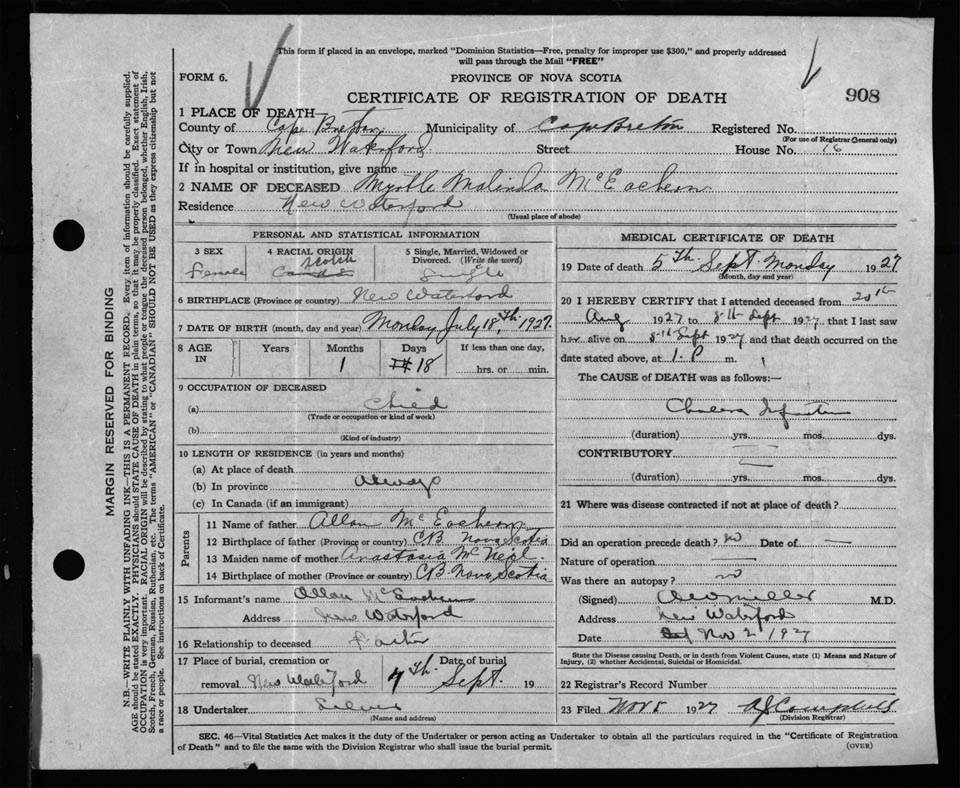 This form if placed in an envelope, marked "Dominion Statistics—Free, penalty for improper use $300," and properly addressed
will pass through the Mail "FREE"
FORM 6.
PROVINCE OF NOVA SCOTIA
CERTIFICATE OF REGISTRATION OF DEATH
908
1 PLACE OF DEATH—
County of Cape Breton Municipality of Cape Breton Registered No.
(For use of Registrar General only)
City or Town New Waterford Street House No. 16
If in hospital or institution, give name
2 NAME OF DECEASED Myrtle Malinda McEachern
Residence New Waterford
(Usual place of abode)
PERSONAL AND STATISTICAL INFORMATION
3 SEX
Female
4 RACIAL ORIGIN
Scotch
5 Single, Married, Widowed or
Divorced. (Write the word)
Single
6 BIRTHPLACE (Province or country) New Waterford
7 DATE OF BIRTH (month, day and year) Monday July 18th, 1927.
8 AGE IN
Years Months Days If less than one day,
1 18 hrs. or min.
9 OCCUPATION OF DECEASED
(a) Child
(Trade or occupation or kind of work)
(b)
(Kind of industry)
10 LENGTH OF RESIDENCE (in years and months)
(a) At place of death
(b) In province Always
(c) In Canada (if an immigrant)
Parents
11 Name of father Allan McEachern
12 Birthplace of father (Province or country) C.B. Nova Scotia
13 Maiden name of mother Anastasia McNeil.
14 Birthplace of mother (Province or country) C.B. Nova Scotia
15 Informant's name Allan McEachern
Address New Waterford
16 Relationship to deceased Father
17 Place of burial, cremation or Date of burial
removal New Waterford 7th. Sept. 19
18 Undertaker
(Name and address)
MEDICAL CERTIFICATE OF DEATH
19 Date of death 5th Sept. Monday 1927
(Month, day and year)
20 I HEREBY CERTIFY that I attended deceased from 20th
Aug 1927 to 8th Sept 1927, that I last saw
her alive on 8th Sept 1927 and that death occurred on the
date stated above, at 1. P m.
The CAUSE of DEATH was as follows:—
Cholera Infantum
(duration) yrs. mos. dys.
CONTRIBUTORY
(duration) yrs. mos. dys.
21 Where was disease contracted if not at place of death?
Did an operation precede death? no Date of —
Nature of operation —
Was there an autopsy? no
(Signed) Miller M.D.
Address New Waterford
Date Nov 2 1927
State the Disease causing Death, or in death from Violent Causes, state (1) Means and Nature of
Injury, (2) whether Accidental, Suicidal or Homicidal.
22 Registrar's Record Number
23 Filed Nov 5 1927 A J Campbell
(Division Registrar)
SEC. 46—Vital Statistics Act makes it the duty of the Undertaker or person acting as Undertaker to obtain all the particulars required in the "Certificate of Registration
of Death" and to file the same with the Division Registrar who shall issue the burial permit.
(OVER)
MARGIN RESERVED FOR BINDING
N.B.—WRITE PLAINLY WITH UNFADING INK—THIS IS A PERMANENT RECORD. Every item of information should be carefully supplied.
AGE should be stated EXACTLY. PHYSICIANS should STATE CAUSE OF DEATH in plain terms, so that it may be properly classified. Exact statement of
OCCUPATION is very important. RACIAL ORIGIN will be described by stating to what people or tongue the deceased person belonged, whether English, Irish,
Scotch, French, German, Russian, Ruthenian, etc. The terms "AMERICAN" or "CANADIAN" SHOULD NOT BE USED as they express citizenship but not
a race or people. See instructions on back of Certificate.